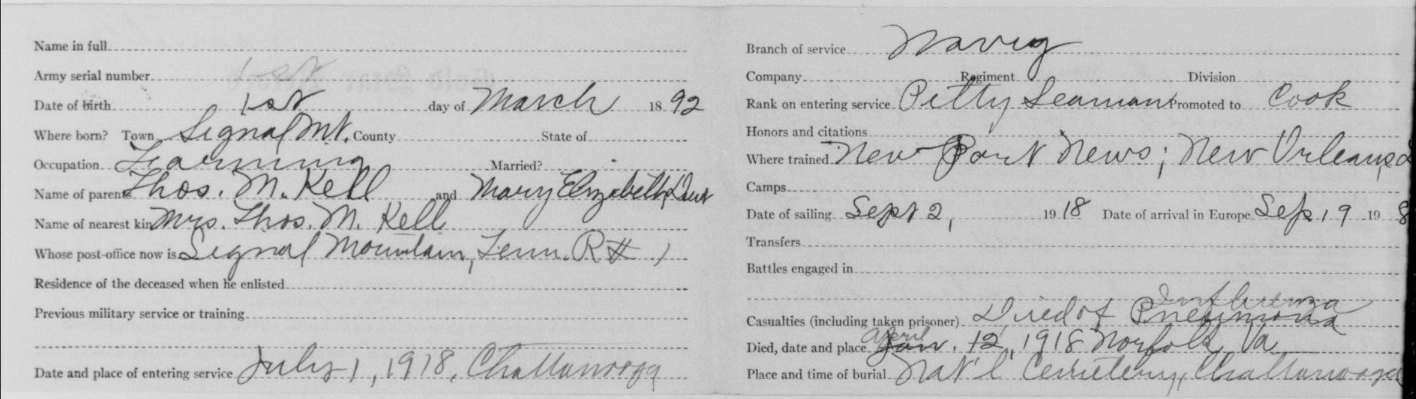 Name in full
Army serial number
Date of birth 1st day of March 1892
Where born? Town Signal Mt. County State of
Occupation Farming Married?
Name of parents Thos. M. Kell and Mary Elizabeth
Name of nearest kin Mrs. Thos. M. Kell
Whose post-office now is Signal Mountain, Tenn. R# 1
Residence of the deceased when he enlisted
Previous military service or training
Date and place of entering service July 1, 1918, Chattanooga
Branch of service Navy
Company Regiment Division
Rank on entering service Petty Seaman Promoted to Cook
Honors and citations
Where trained New Port News; New Orleans,
Camps
Date of sailing Sept 2, 1918 Date of arrival in Europe Sep 19 19 8
Transfers
Battles engaged in
Influenza
Casualties (including taken prisoner) Died of Pneumonia
April
Died, date and place Jan. 12, 1918 Norfolk, Va
Place and time of burial Nat'l Cemetery, Chattanooga